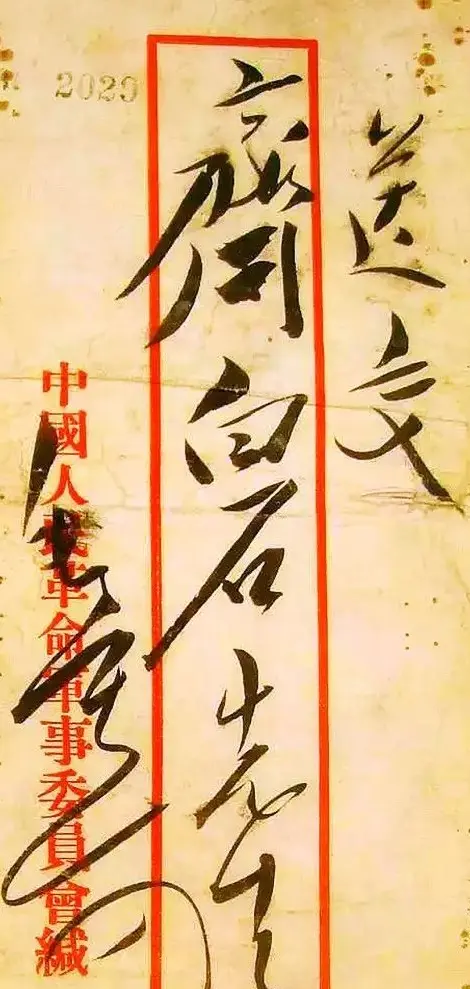 送交
齊白石先生
中國人民革命軍事委員會緘
2029